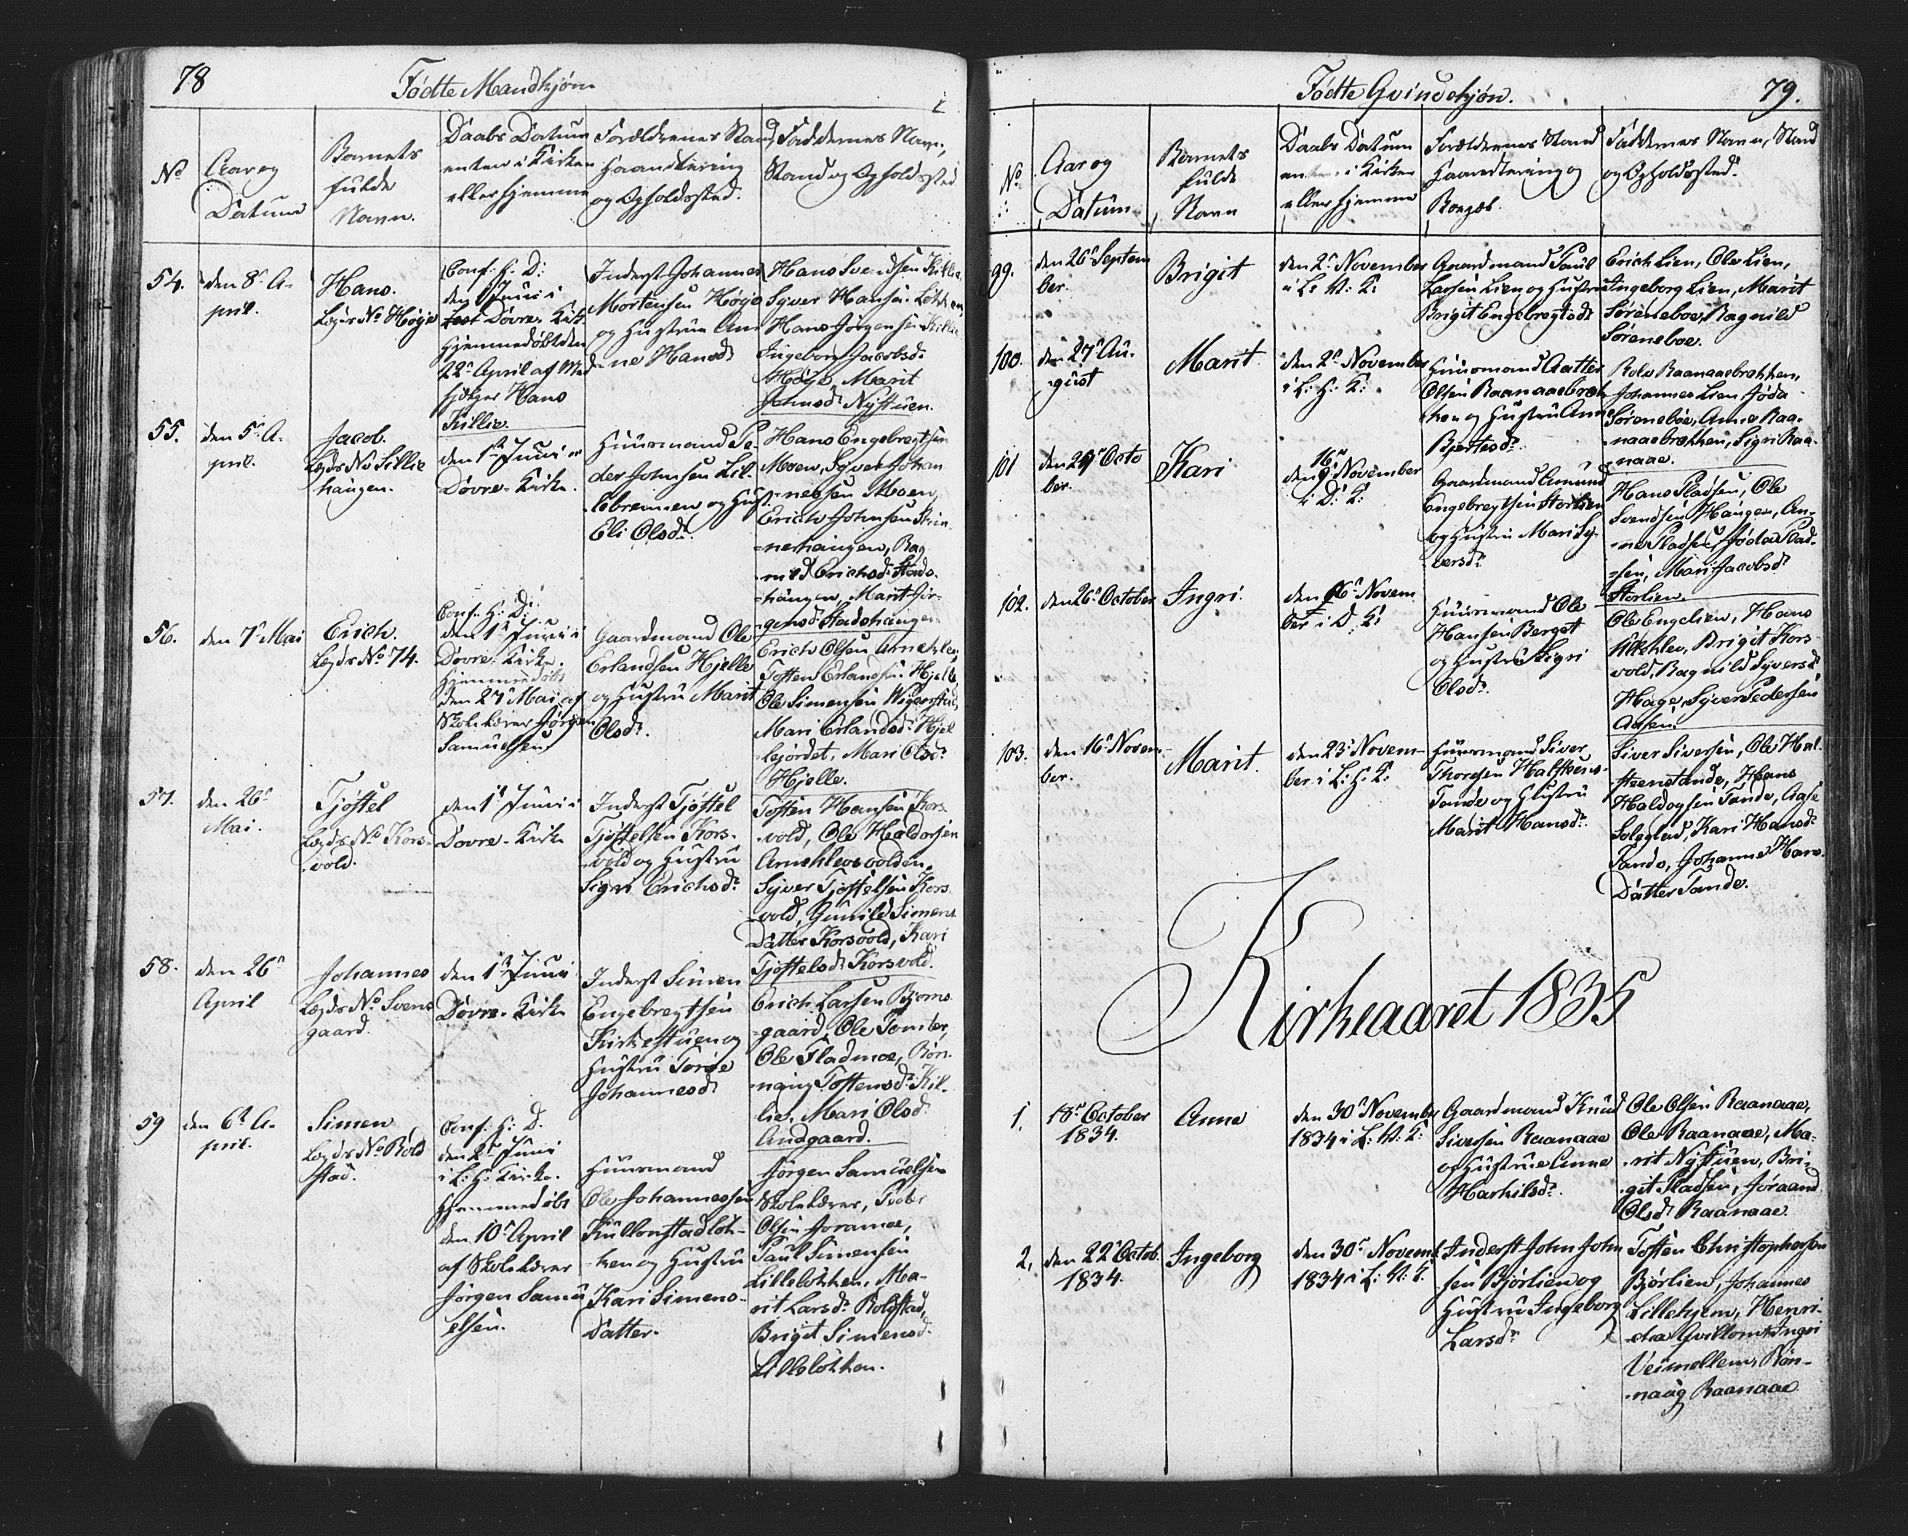 78
Fødte Mandkjøn
No
Aar og
Datum
Barnets
fulde
Navn.
Daabs Datum
enten i Kirken
eller hjemme
Forældrenes Stand
Haandtering
og Opholdssted.
Faddernes Navn,
Stand og Opholdssted
54.
den 8de A-
pril.
Hans.
Lægds No Høye
Conf: H: D:
den 1ste Juni i
Dovre Kirk
Hjemmedøbt den
22de April af Med-
hjelper Hans
Killie.
Inderst Johannes
Mortensen Høye
og Hustrue An-
ne Hansd:
Hans Svendsen Killie
Syver Hansen Løkken
Hans Jørgensen Killie
Ingeborg Jacobsd:
Høye, Marit
Johnsd: Nystuen.
55.
den 5te A-
pril.
Jacob.
Lægds No Lillie
haugen.
den 1ste Juni i
Dovre Kirke.
Huusmand Pe-
der Johnsen Lil-
lebrennen og Hust:
Eli Olsd:
Hans Engebregtsen
Moen, Syver Johan
nessen Moen,
Erich Johnsen Brin-
nerhaugen, Rag
nild Erichsd: Stads-
haugen, Marit Jør-
gensd: Stadshaugen
56.
den 7de Mai
Erich.
Lægds No 74.
Conf: H: D:
den 1ste Juni i
Dovre Kirke.
Hjemmedøbt
den 27de Mai af
Skolelærer Jørgen
Samuelsen
Gaardmand Ole
Erlandsen Hjelle
og Hustru Marit
Olsd:
Erich Olsen Arnekleiv
Tosten Erlandsen Hjelle,
Ole Simensen Wigerstad,
Mari Erlandsd: Hjel
lejordet, Mari Olsd:
Hjelle.
57.
den 26de
Mai.
Tjøstel
Lægds No Kors-
vold.
den 1ste Juni i
Dovre Kirke
Inderst Tjøstel
Tjøstelsen Kors-
vold og Hustru
Sigri Erichsd:
Tosten Hansen Kors-
vold, Ole Haldorsen
Arnekleivvolden,
Syver Tjøstelsen Kors
vold, Gunild Simens
Datter Korsvold, Kari
Tjøstelsd: Korsvold.
58.
den 26de
April
Johannes
Lægds No Svens
gaard.
den 1ste Juni
Dovre Kirke
Inderst Simen
Engebregtsen
Kirkestuen og
Hustru Torøe
Johannesd:
Erich Larsen Bjorns
gaard, Ole Tomter,
Ole Fladmoe, Røn-
naug Tostensd: Kil-
lie, Mari Olsd:
Andgaard.
59
den 6te A-
pril.
Simen
Lægds No Rold
stad.
Conf: H: D.
den 2den Juni
i L: H: Kirke.
Hjemmedøbt
den 10de April
af Skolelærer
Jørgen Samu
elsen.
Huusmand
Ole Johannessen
Kullonstadløk-
ken og Hustru
Kari Simens-
Datter.
Jørgen Samuelsen
Skolelærer, Peder
Olsen Joramoe,
Paul Simensen
Lilleløkken, Ma-
rit Larsd: Roldstad,
Brigit Simensd:
Lilleløkken.
79.
Fødte Qvindekjøn.
No
Aar og
Datum
Barnets
fulde
Navn
Daabs Datum
enten i Kirken
eller hjemme
Forældrenes Stand
Haandtering og
Boepæl.
Faddernes Navn, Stand
og Opholdssted.
99.
den 26de Septem
ber.
Brigit
den 2den November
i L: H: K:
Gaardmand Paul
Larsen Lien og Hustrue
Brigit Engebregtsd:
Erich Lien, Ole Lien,
Ingeborg Lien, Marit
Søreneboe, Ragnild
Søreneboe.
100.
den 27de Au-
gust
Marit
den 2den November
i L: H: K:
Huusmand Aatter
Olsen Raanaaebræk
ken og Hustru Anne
Bjertesd:
Rolv Raanaaebrækken,
Johannes Lien, Jøda
Sørenebøe, Anne Raa-
naaebrækken, Sigri Raa-
naae.
101
den 29de Octo
ber.
Kari
16de
den November
i D: K:
Gaardmand Amund
Engebregtsen Storlien
og Hustru Mari Sy-
versd:
Hans Pladsen, Ole
Svendsen Haugen, An-
ne Pladsen, Jøda Plad-
sen, Mari Jacobsd:
Storlien.
102.
den 26de October
Ingri.
den 16de Novem
ber i D: K:
Huusmand Ole
Hansen Berget
og Hustru Sigri
Olsd:
Ole Engelien, Hans
Brigit Kors
vold, Ragnild Syversd:
Hage, Syver Pedersen
Aasen.
103.
den 16de Novem-
ber.
Marit.
den 23de Novem-
ber i L: H: K:
Huusmand Siver
Thoresen Halfteens-
Tande og Hustru
Marit Hansd:
Siver Siversen, Ole Hal-
fteenstande, Hans
Haldogsen Tande, Aase
Soleglad, Kari Hansd:
Tande, Johanne Hans-
Datter Tande.
Kirkeaaret 1835
1,
18de October
1834.
Anne
den 30de November
1834 i L: H: K:
Gaardmand Knud
Siversen Raanaae
og Hustrue Anne
Harkilsd:
Ole Olsen Raanaae,
Ole Raanaae, Ma-
rit Nystuen, Bri-
git Pladsen, Joraand
Olsd: Raanaae
2,
den 22de Octob.
1834.
Ingeborg
den 30te Novemb.
1834 i L: H: K:
Inderst John John
sen Bjørlien og
Hustru Ingeborg
Larsd:
Tosten Christophersen
Bjørlien, Johannes
Lillehjem, Henri-
cha Qvillont Ingri
Veimellem, Røn-
naug Raanaae